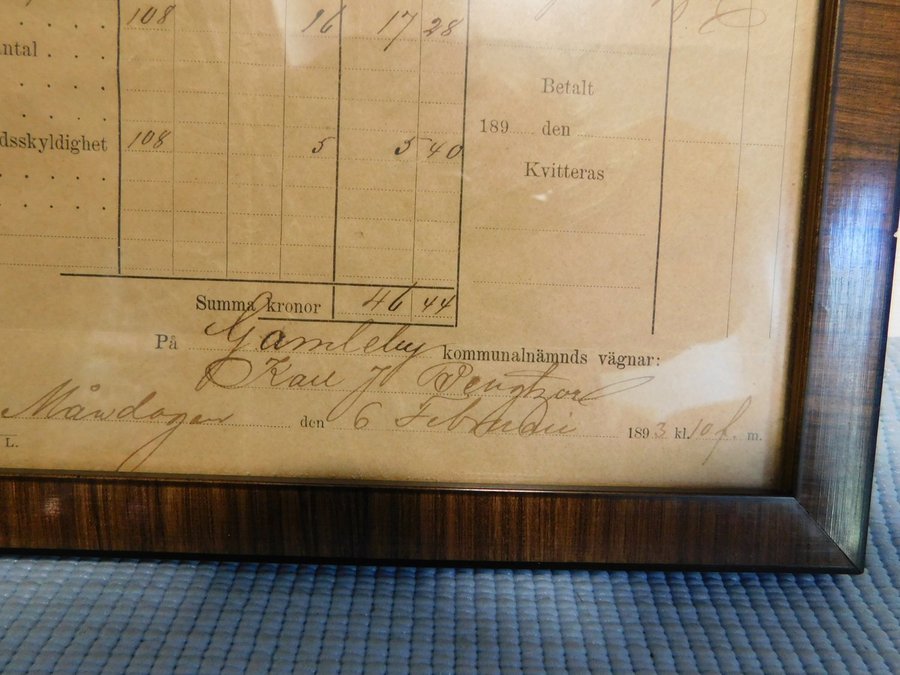 108 16 17 28
ntal . . .
Betalt
189 den
dsskyldighet 108 5 5 40
Kvitteras
Summa kronor 46 44
På Gamleby kommunalnämnds vägnar:
Karl J Bengtson
Måndagen den 6 Februari 1893 kl. 10 f. m.
L.